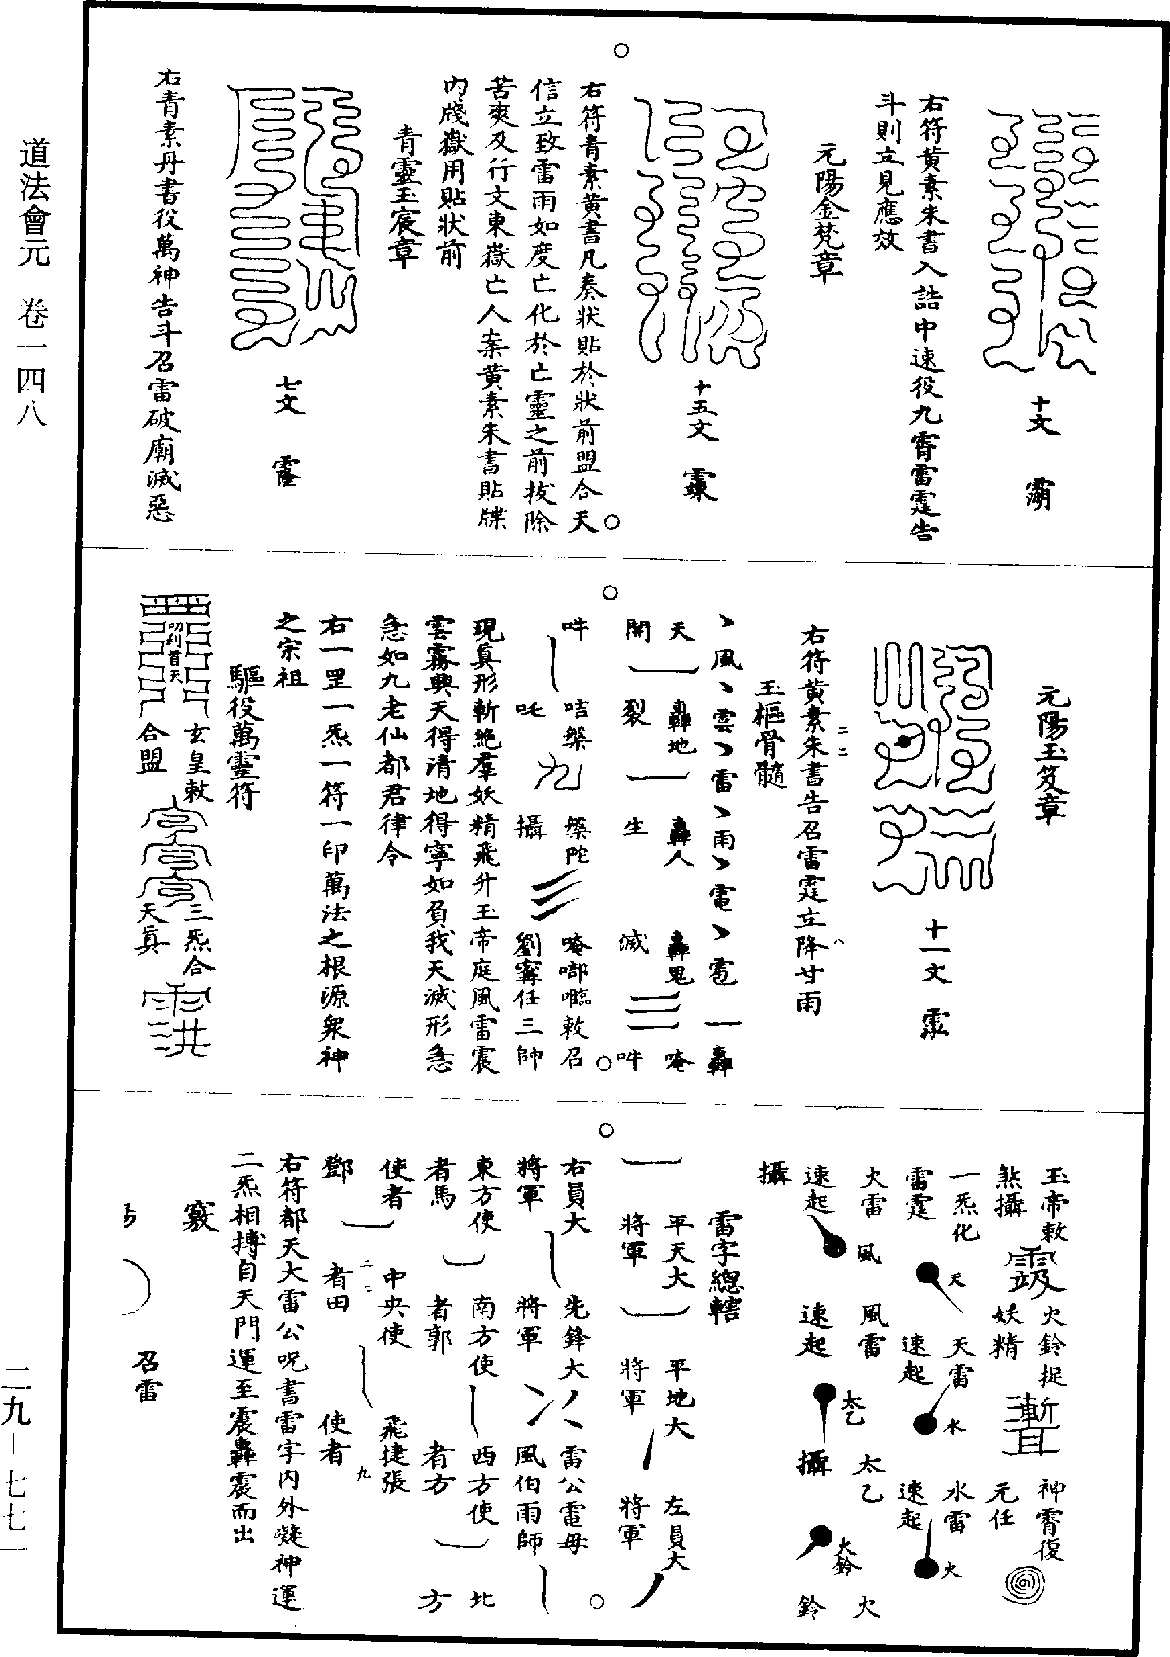 道法會元　卷一四八
十文
右符黃素朱書入誥中速役九霄雷霆告
斗則立見應效
元陽金梵章
十五文
右符青素黃書凡奏狀貼於狀前盟合天
信立致雷雨如度亡化於亡靈之前拔除
苦爽及行文東嶽亡人案黃素朱書貼牒
內牋嶽用貼狀前
青靈玉宸章
七文
右青素丹書役萬神告斗召雷破廟滅惡
元陽玉笈章
十一文
右符黃素朱書告召雷霆立降甘雨
玉樞骨髓
風雲雷雨電雹轟
天轟地轟人轟鬼唵
開裂生滅吽
吽咭㗚㗚陀唵啷㘕敕召
吒攝劉甯任三帥
現真形斬絕羣妖精飛升玉帝庭風雷震
雲霧興天得清地得寧如負我天滅形急
急如九老仙都君律令
右一罡一炁一符一印萬法之根源衆神
之宗祖
驅役萬靈符
玄皇敕　三炁合
合盟　天真
玉帝敕　火鈴捉　神霄復
煞攝　妖精　元任
一炁化　天　天雷　水　水雷　火
雷霆　速起　速起
火雷　風　風雷　太乙　太乙　火鈴　火
速起　速起　攝　鈴
攝
雷字總轄
平天大　平地大　左員大
將軍　將軍　將軍
右員大　先鋒大　雷公電母
將軍　將軍　風伯雨師
東方使　南方使　西方使　北
者馬　者郭　者方　方
使者　中央使　飛捷張
鄧　者田　使者
右符都天大雷公呪書雷字內外凝神運
二炁相搏自天門運至震轟震而出
竅
召雷
二九—七七一